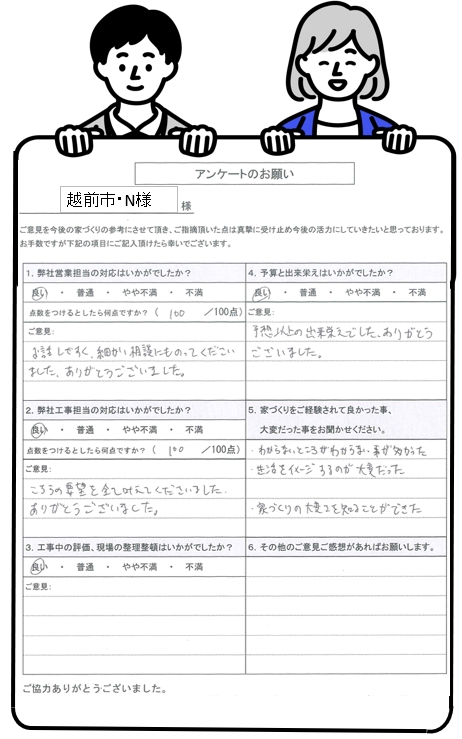 アンケートのお願い
越前市・N様
様
ご意見を今後の家づくりの参考にさせて頂き、ご指摘頂いた点は真摯に受け止め今後の活力にしていきたいと思っております。
お手数ですが下記の項目にご記入頂けたら幸いでございます。
1. 弊社営業担当の対応はいかがでしたか?
良い ・ 普通 ・ やや不満 ・ 不満
点数をつけるとしたら何点ですか?( 100 /100点)
ご意見:
お話しやすく、細かい相談にものってください
ました。ありがとうございました。
2. 弊社工事担当の対応はいかがでしたか?
良い ・ 普通 ・ やや不満 ・ 不満
点数をつけるとしたら何点ですか?( 100 /100点)
ご意見:
こちらの要望を全て叶えてくださいました。
ありがとうございました。
3. 工事中の評価、現場の整理整頓はいかがでしたか?
良い ・ 普通 ・ やや不満 ・ 不満
ご意見:
4. 予算と出来栄えはいかがでしたか?
良い ・ 普通 ・ やや不満 ・ 不満
ご意見:
予想以上の出来栄えでした。ありがとう
ございました。
5. 家づくりをご経験されて良かった事、
大変だった事をお聞かせください。
・わからないところがわからない事が多かった
・生活をイメージするのが大変だった
・家づくりの大変さを知ることができた
6. その他のご意見ご感想があればお願いします。
ご協力ありがとうございました。